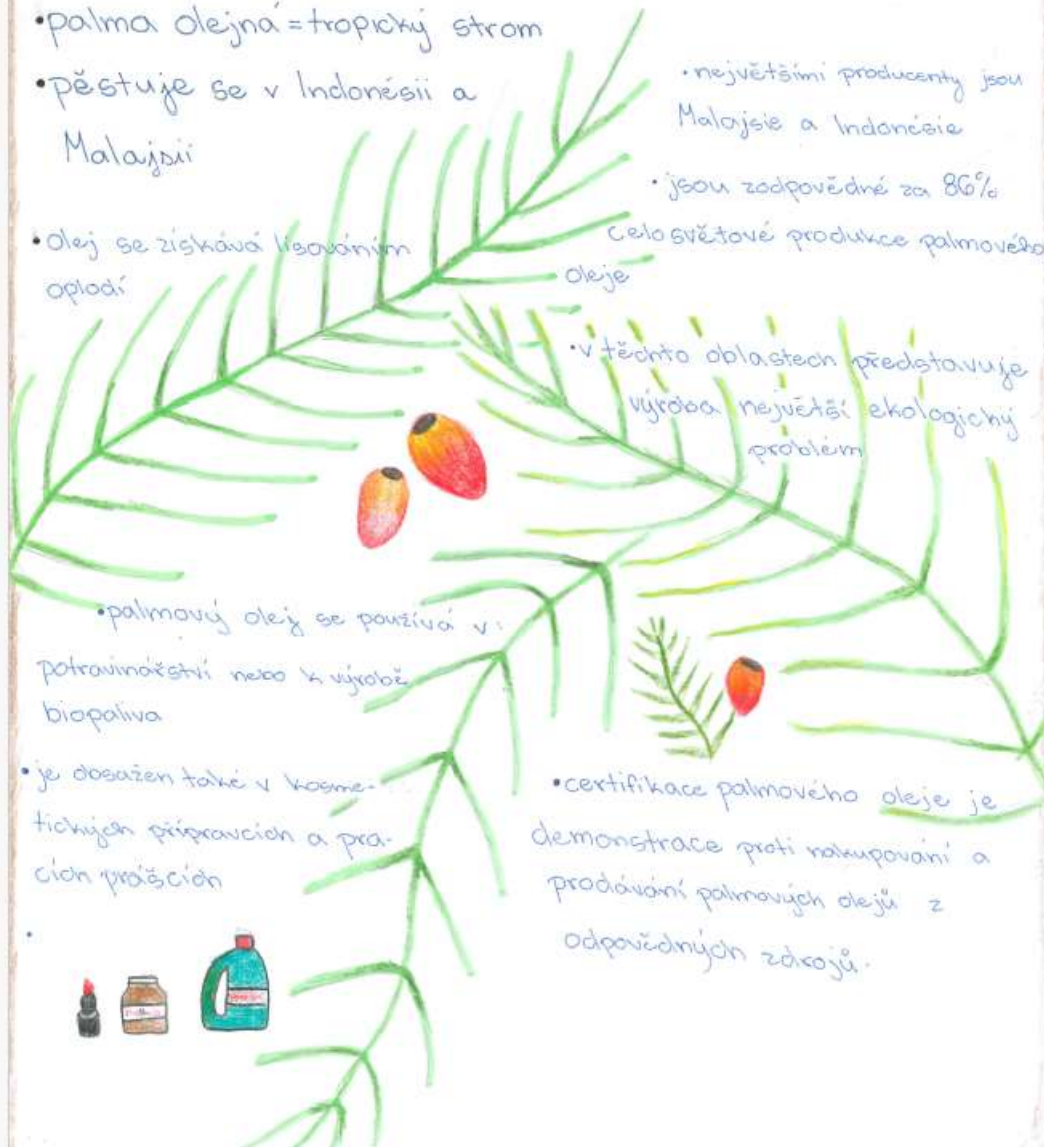 •palma olejná=tropický strom
•pěstuje se v Indonésii a
Malajsii
•Olej se získává lisováním
oplodí
•největšími producenty jsou
Malajsie a Indonésie
•jsou zodpovědné za 86%
celosvětové produkce palmového
oleje
•v těchto oblastech představuje
výroba největší ekologický
problém
•palmový olej se používá v
potravinářství nebo k výrobě
biopaliva
•je obsažen také v kosme-
tických přípravcích a pra-
cích prášcích
•certifikace palmového oleje je
demonstrace proti nakupování a
prodávání palmových olejů z
odpovědných zdrojů.